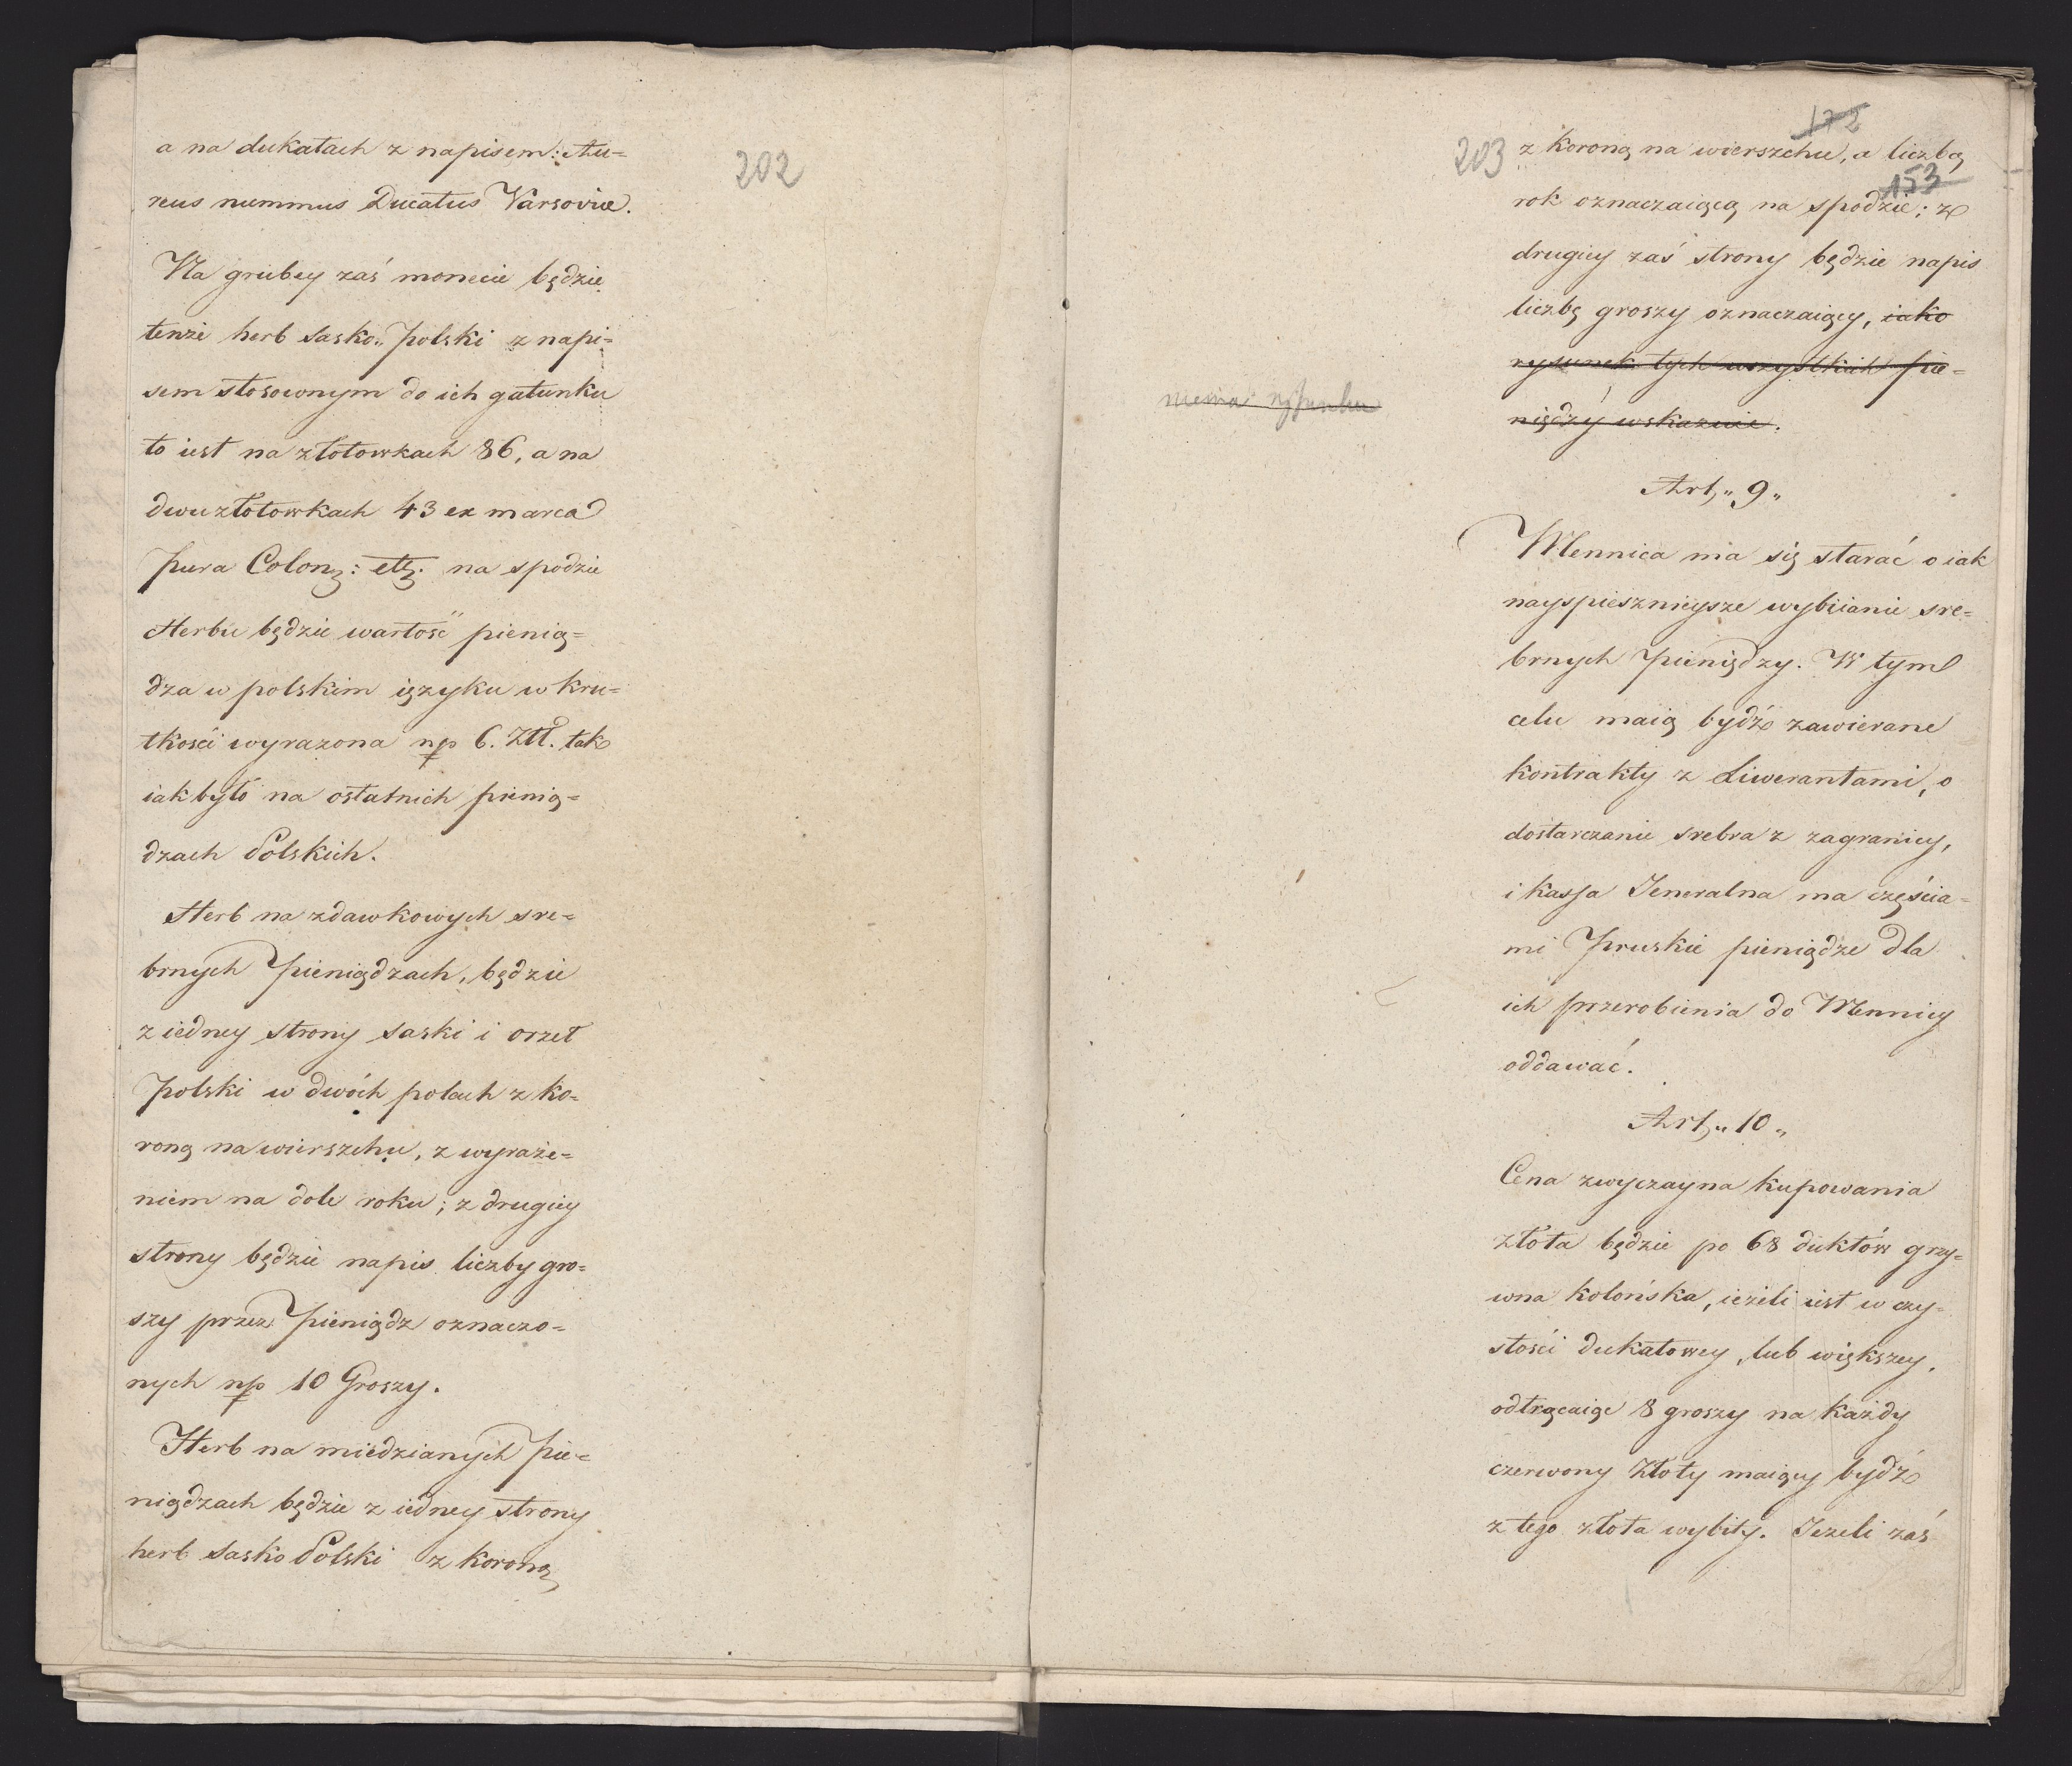 202
a na dukatach z napisem: Au=
reus nummus Ducatus Varsoviæ.
Na grubey zaś monecie będzie
tenże herb Sasko„ Polski z napi=
sem stosownym do ich gatunku
to iest na złotowkach 86, a na
dwuzłotowkach 43 ex marca
pura Colon: etz. na spodzie
Herbu będzie wartość pienią=
dza w polskim ięzyku w kru=
tkości wyrazona np 6. Złł. tak
iak było na ostatnich pienią=
dzach Polskich.
Herb na zdawkowych sre=
brnych Pieniądzach, będzie
z iedney strony saski i orzeł
Polski w dwóch polach z ko=
roną na wierszchu, z wyraże=
niem na dole roku; z drugiey
strony będzie napis liczby gro=
szy przez Pieniądz oznaczo=
nych np 10 Groszy.
Herb na miedzianych Pie=
niądzach będzie z iedney strony
herb Sasko Polski z koroną
172
203
153
z Koroną na wierszchu, a liczbą
rok oznaczaiącą na spodzie; z
drugiey zaś strony będzie napis
liczbę groszy oznaczaiący, iako
rysunek tych wszystkich pie=
niędzy wskazuie.
niema rysunku
Art„ 9„
Mennica ma się starać o iak
nayspiesznieysze wybiianie sre=
brnych Pieniędzy. W tym
celu maią bydź zawierane
kontrakty z Liwerantami, o
dostarczanie srebra z zagranicy,
i Kassa Jeneralna ma częścia=
mi Pruskie pieniądze dla
ich przerobienia do Mennicy
oddawać.
Art„ 10„
Cena zwyczayna kupowania
złota będzie po 68 duktów grzy=
wna kolońska, ieżeli iest w czy=
stości dukatowey, lub większey,
odtrącaiąc 8 groszy na każdy
czerwony Złoty maiący bydź
z tego złota wybity. Jezeli zaś